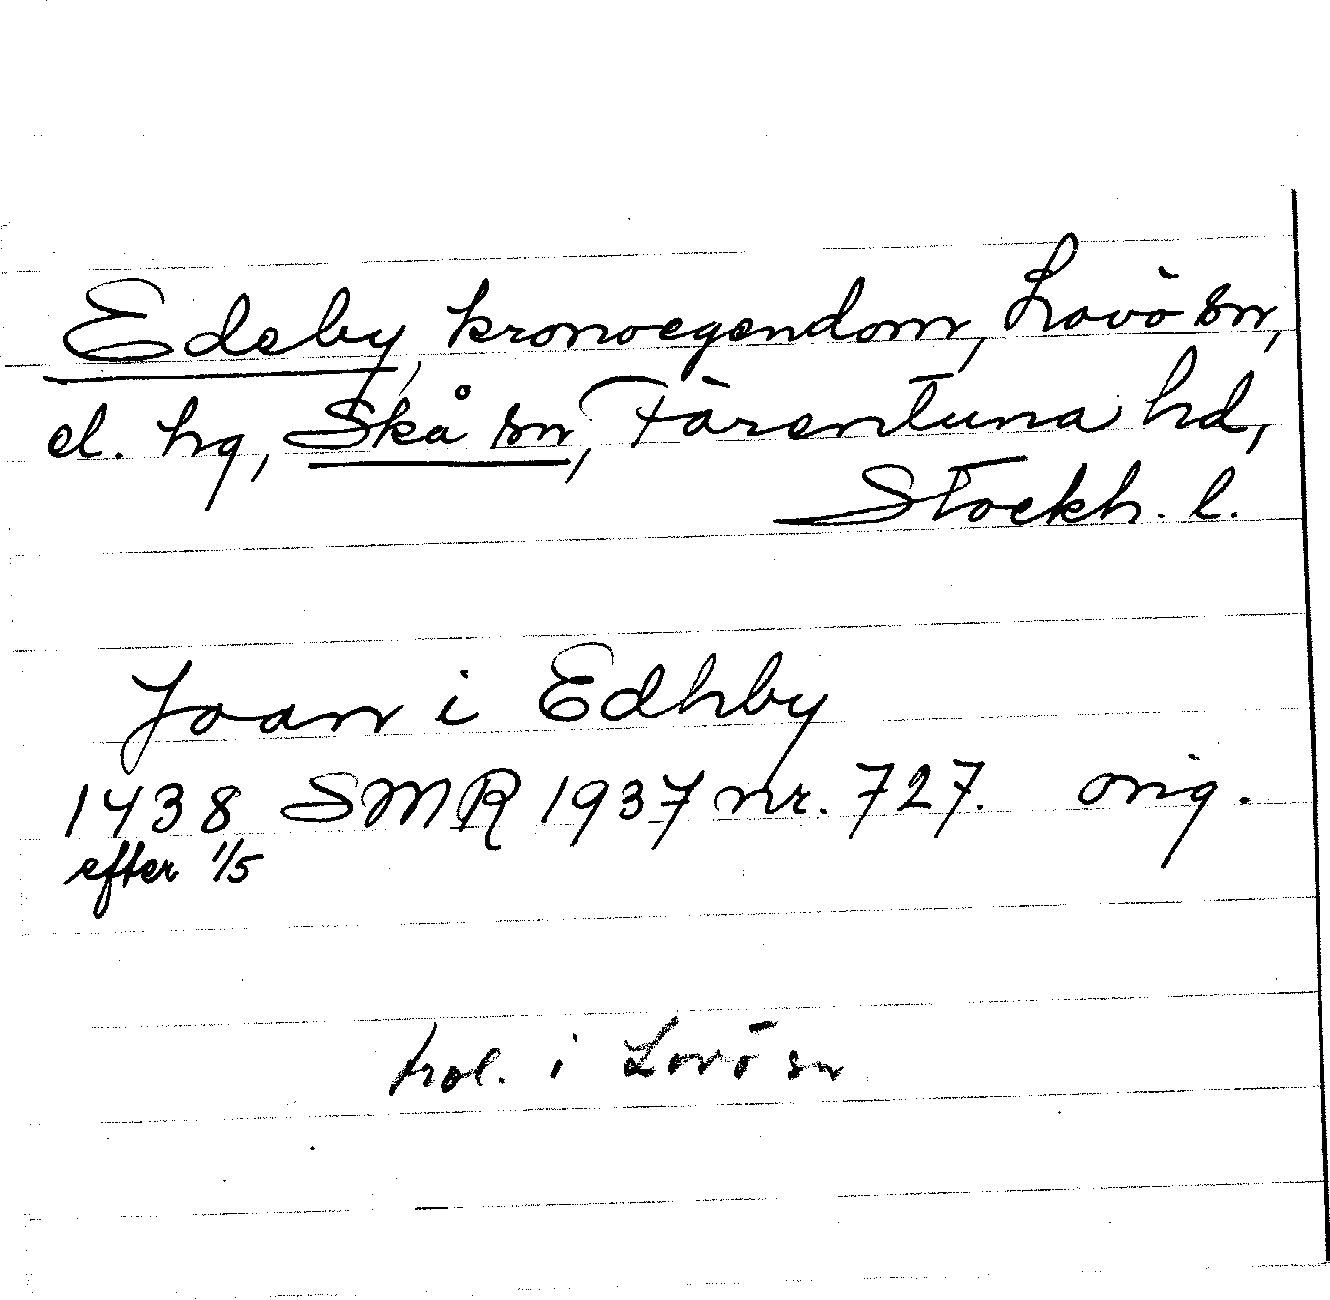 Edeby, kronoegendom, Lovö sn,
el. hg, Skå sn, Färentuna hd,
Stockh. l.
Joan i Edhby
1438 SMR 1937 nr. 727. orig.
efter 1/5
trol. i Lovö sn